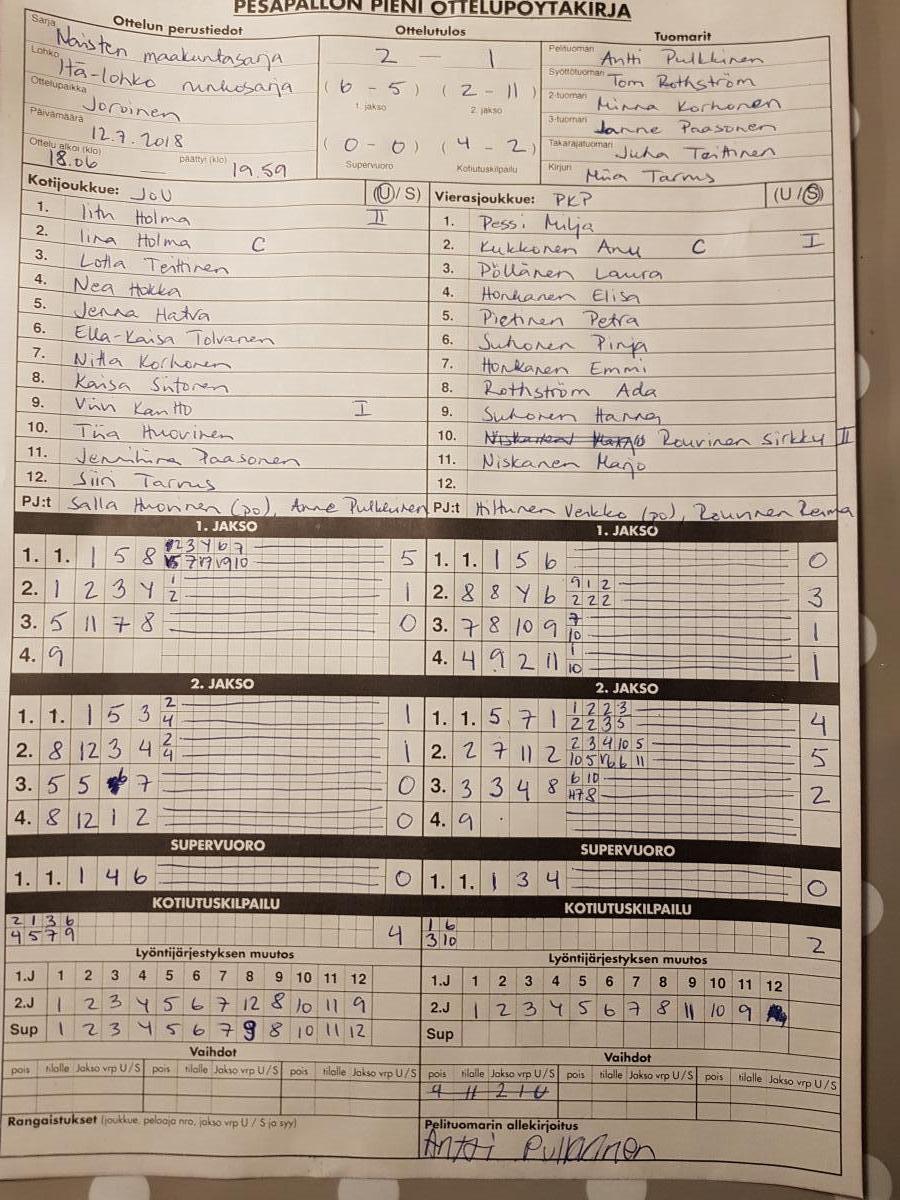 PESÄPALLON PIENI OTTELUPÖYTÄKIRJA
Ottelun perustiedot
Sarja Naisten maakuntasarja
Lohko Itä-lohko runkosarja
Ottelupaikka Joroinen
Päivämäärä 12.7.2018
Ottelu alkoi (klo) 18.06 — päättyi (klo) 19.59
Ottelutulos
2 — 1
(6 - 5) (2 - 11)
1. jakso 2. jakso
(0 - 0) (4 - 2)
Supervuoro Kotiutuskilpailu
Tuomarit
Pelituomari Antti Pulkkinen
Syöttötuomari Tom Rothström
2-tuomari Minna Korhonen
3-tuomari Janne Paasonen
Takarajatuomari Juha Teittinen
Kirjuri Miia Tarvus
Kotijoukkue: JoU (U/S)
1. Iitu Holma II
2. Iina Holma C
3. Lotta Teittinen
4. Nea Hokka
5. Jenna Hatva
6. Ella-Kaisa Tolvanen
7. Nitta Korhonen
8. Kaisa Siitonen
9. Viivi Kantto I
10. Tiia Huovinen
11. Jenniina Paasonen
12. Siiri Tarvus
PJ:t Salla Huovinen (po), Anne Pulkkinen
Vierasjoukkue: PKP (U/S)
1. Pessi Milja
2. Kukkonen Anu C I
3. Pöllänen Laura
4. Honkanen Elisa
5. Pietinen Petra
6. Suhonen Pinja
7. Honkanen Emmi
8. Rothström Ada
9. Suhonen Hanna
10. Rouvinen Sirkky II
11. Niskanen Marjo
12.
PJ:t Hiltunen Veikko (po), Rouvinen
1. JAKSO
1. 1. 1 5 8 5
2. 1 2 3 4 1 2 1
3. 5 11 7 8 0
4. 9
1. JAKSO
1. 1. 1 5 6 0
2. 8 8 4 6 9 1 2 2 2 2 3
3. 7 8 10 9 7 10 1
4. 4 9 2 11 1 10 1
2. JAKSO
1. 1. 1 5 3 2 4 1
2. 8 12 3 4 2 4 1
3. 5 5 6 7 0
4. 8 12 1 2 0
2. JAKSO
1. 1. 5 7 1 1 2 2 3 2 2 3 5 4
2. 2 7 11 2 2 3 4 10 5 5
3. 3 3 4 8 6 10 2
4. 9
SUPERVUORO
1. 1. 1 4 6 0
SUPERVUORO
1. 1. 1 3 4 0
KOTIUTUSKILPAILU
2 1 3 6
4 5 7 9 4
KOTIUTUSKILPAILU
1 6
3 10 2
Lyöntijärjestyksen muutos
1.J 1 2 3 4 5 6 7 8 9 10 11 12
2.J 1 2 3 4 5 6 7 12 8 10 11 9
Sup 1 2 3 4 5 6 7 9 8 10 11 12
Lyöntijärjestyksen muutos
1.J 1 2 3 4 5 6 7 8 9 10 11 12
2.J 1 2 3 4 5 6 7 8 11 10 9
Sup
Vaihdot
pois tilalle Jakso vrp U/S pois tilalle Jakso vrp U/S pois tilalle Jakso vrp U/S
Vaihdot
pois tilalle Jakso vrp U/S pois tilalle Jakso vrp U/S pois tilalle Jakso vrp U/S
9 11 2 1 U
Rangaistukset (joukkue, pelaaja nro, jakso vrp U / S ja syy)
Pelituomarin allekirjoitus
Antti Pulkkinen